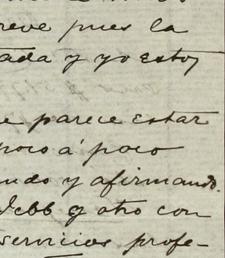 reve pues la
ada y yo estoy
e parece estar
poco á poco
ndo y afirmando.
Webb y otro con
servicios profe-